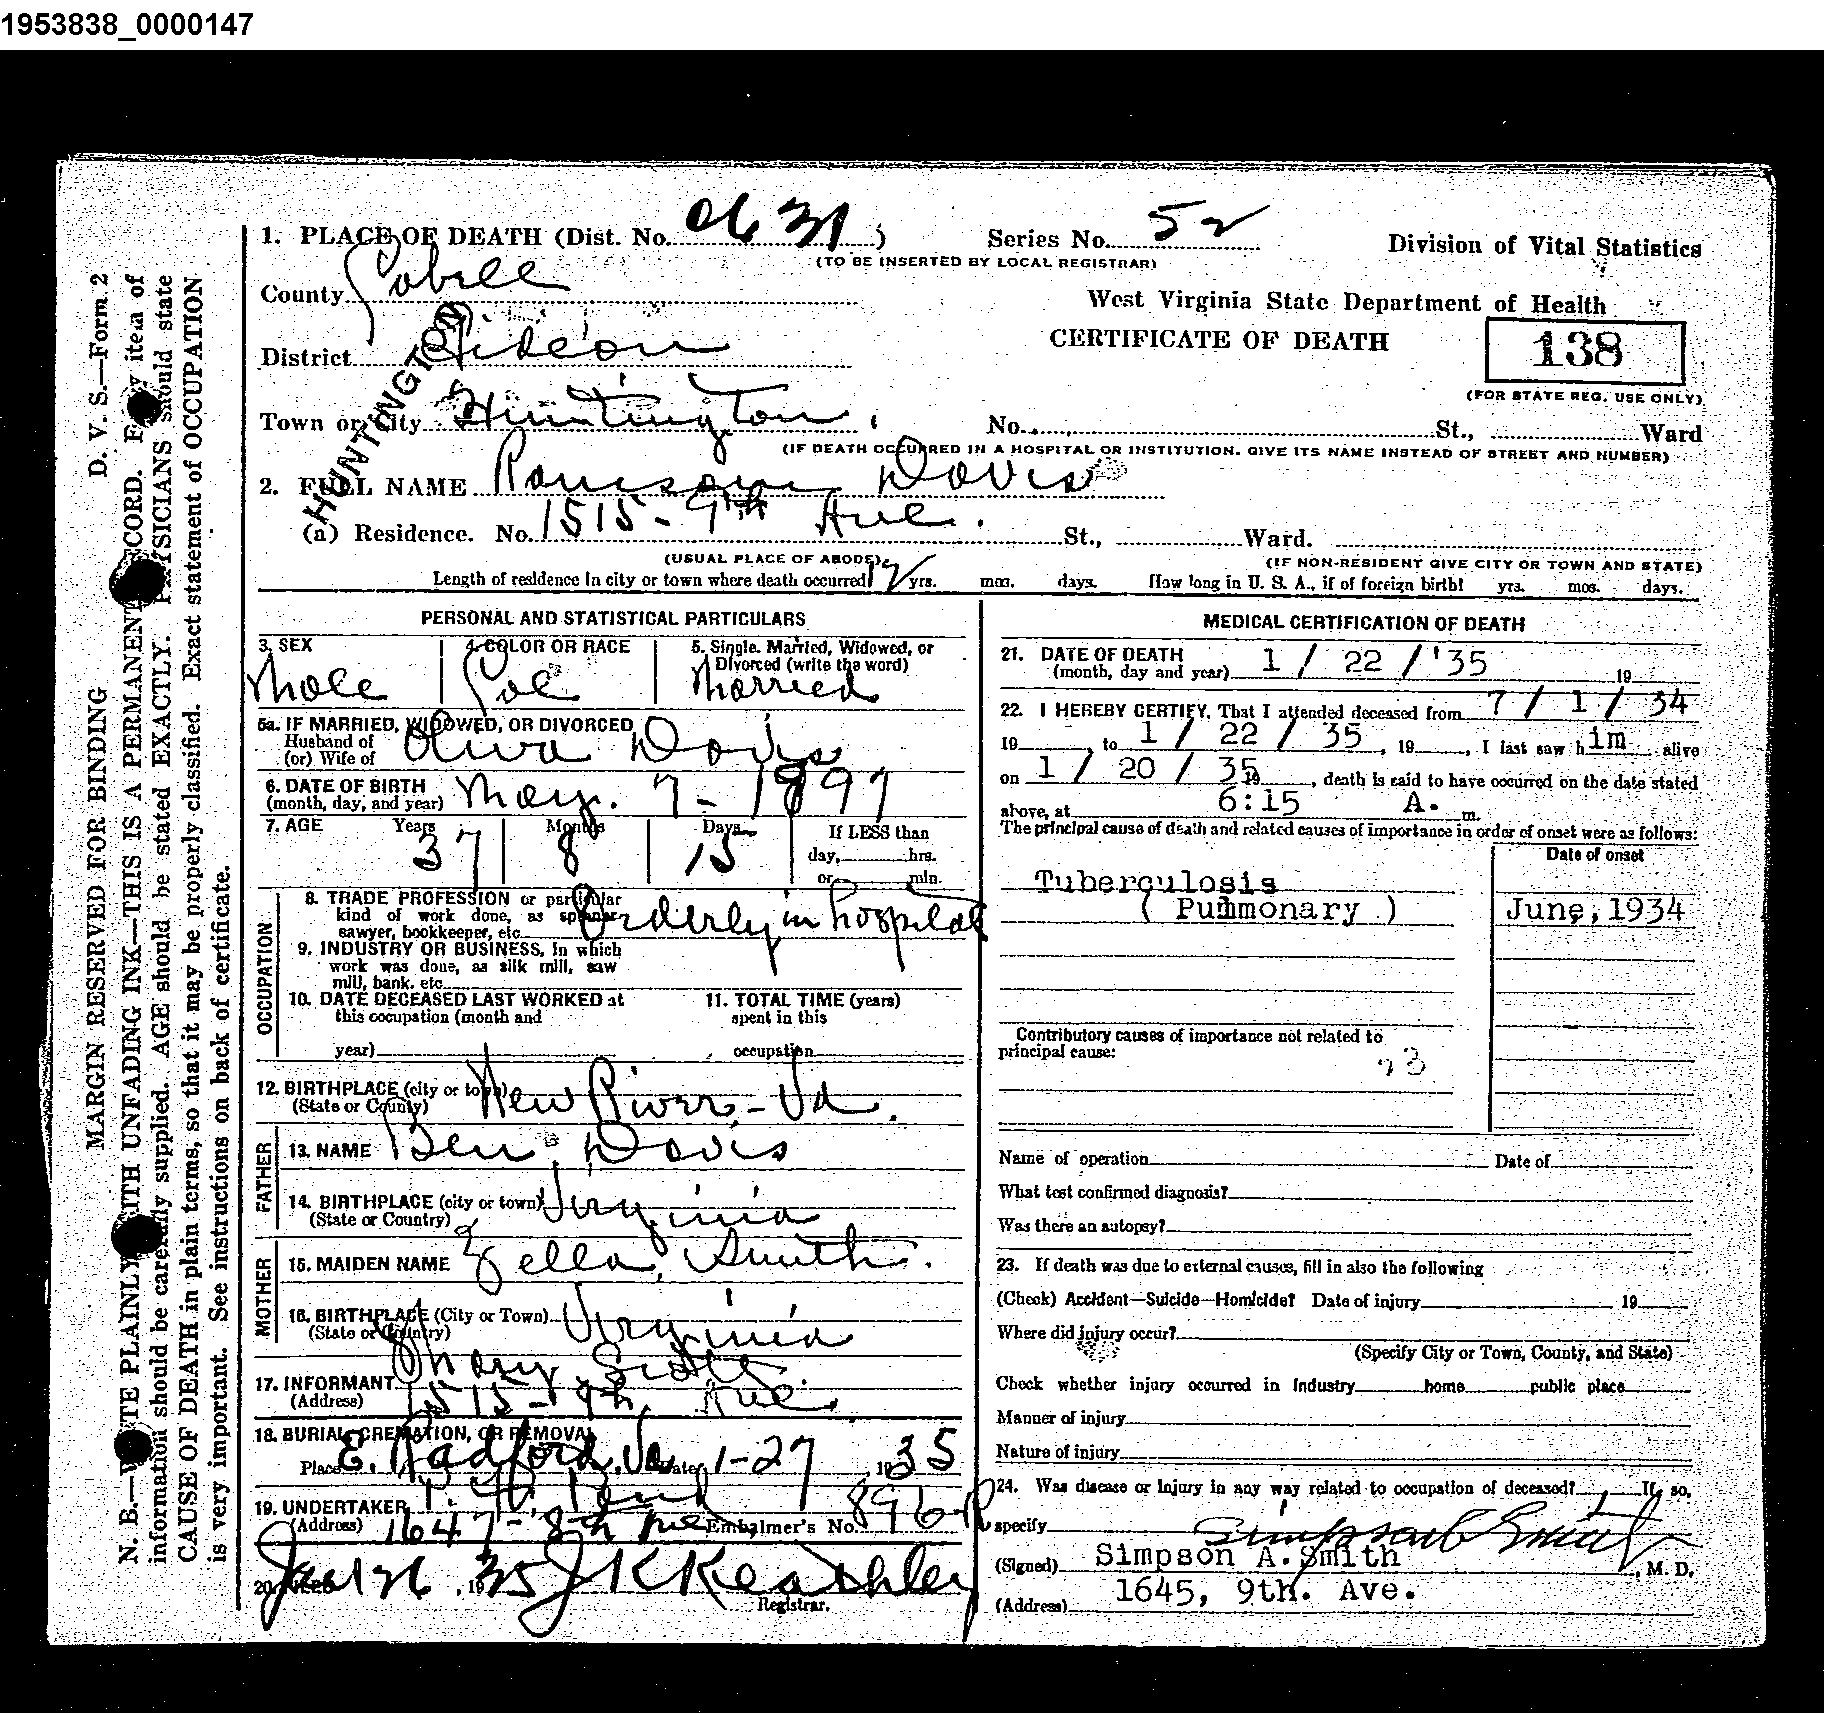 1953838_0000147
1. PLACE OF DEATH (Dist. No. 0631) Series No. 52
(TO BE INSERTED BY LOCAL REGISTRAR)
Division of Vital Statistics
County Cabell
West Virginia State Department of Health
CERTIFICATE OF DEATH
138
(FOR STATE REG. USE ONLY)
District Gideon
HUNTINGTON
Town or City Huntington. No. St., Ward
(IF DEATH OCCURRED IN A HOSPITAL OR INSTITUTION. GIVE ITS NAME INSTEAD OF STREET AND NUMBER)
2. FULL NAME Davis
(a) Residence. No. 1515-9th Ave. St., Ward.
(USUAL PLACE OF ABODE) (IF NON-RESIDENT GIVE CITY OR TOWN AND STATE)
Length of residence in city or town where death occurred yrs. mos. days. How long in U. S. A., if of foreign birth? yrs. mos. days.
PERSONAL AND STATISTICAL PARTICULARS
3. SEX 4. COLOR OR RACE 5. Single. Married, Widowed, or Divorced (write the word)
Male Col Married
5a. IF MARRIED, WIDOWED, OR DIVORCED
Husband of
(or) Wife of Davis
6. DATE OF BIRTH
(month, day, and year) May. 7-1897
7. AGE Years Months Days If LESS than
37 8 15 day, hrs.
or min.
OCCUPATION
8. TRADE PROFESSION or particular
kind of work done, as spinner
sawyer, bookkeeper, etc. Orderly in hospital
9. INDUSTRY OR BUSINESS, in which
work was done, as silk mill, saw
mill, bank. etc.
10. DATE DECEASED LAST WORKED at
this occupation (month and
year)
11. TOTAL TIME (years)
spent in this
occupation
12. BIRTHPLACE (city or town)
(State or County) New River-Va.
FATHER
13. NAME Ben Davis
14. BIRTHPLACE (city or town)
(State or Country) Virginia
MOTHER
15. MAIDEN NAME Zella Smith.
16. BIRTHPLACE (City or Town)
(State or Country) Virginia
17. INFORMANT Mary
(Address) 1515-9th Ave.
18. BURIAL, CREMATION, OR REMOVAL
Place E. Radford, Va. Date 1-27, 1935
19. UNDERTAKER
(Address) 1647-8th Ave Embalmer's No. 896-R
20. FILED Jan 26, 1935 J K Keathley
Registrar.
MEDICAL CERTIFICATION OF DEATH
21. DATE OF DEATH
(month, day and year) 1 / 22 /'35 19
22. I HEREBY CERTIFY, That I attended deceased from 7 / 1 / 34
19 , to 1 / 22 / 35, 19 , I last saw him alive
on 1 / 20 / 35 19 , death is said to have occurred on the date stated
above, at 6:15 A. m.
The principal cause of death and related causes of importance in order of onset were as follows:
Date of onset
Tuberculosis
( Pulmonary ) June, 1934
Contributory causes of importance not related to
principal cause:
23
Name of operation Date of
What test confirmed diagnosis?
Was there an autopsy?
23. If death was due to external causes, fill in also the following
(Check) Accident—Suicide—Homicide? Date of injury 19
Where did injury occur?
(Specify City or Town, County, and State)
Check whether injury occurred in Industry home public place
Manner of injury
Nature of injury
24. Was disease or injury in any way related to occupation of deceased? If so,
specify
Simpson A. Smith
(Signed) Simpson A. Smith, M. D.
(Address) 1645, 9th. Ave.
D. V. S.—Form 2
MARGIN RESERVED FOR BINDING
N. B.—WRITE PLAINLY WITH UNFADING INK—THIS IS A PERMANENT RECORD. Every item of
information should be carefully supplied. AGE should be stated EXACTLY. PHYSICIANS should state
CAUSE OF DEATH in plain terms, so that it may be properly classified. Exact statement of OCCUPATION
is very important. See instructions on back of certificate.